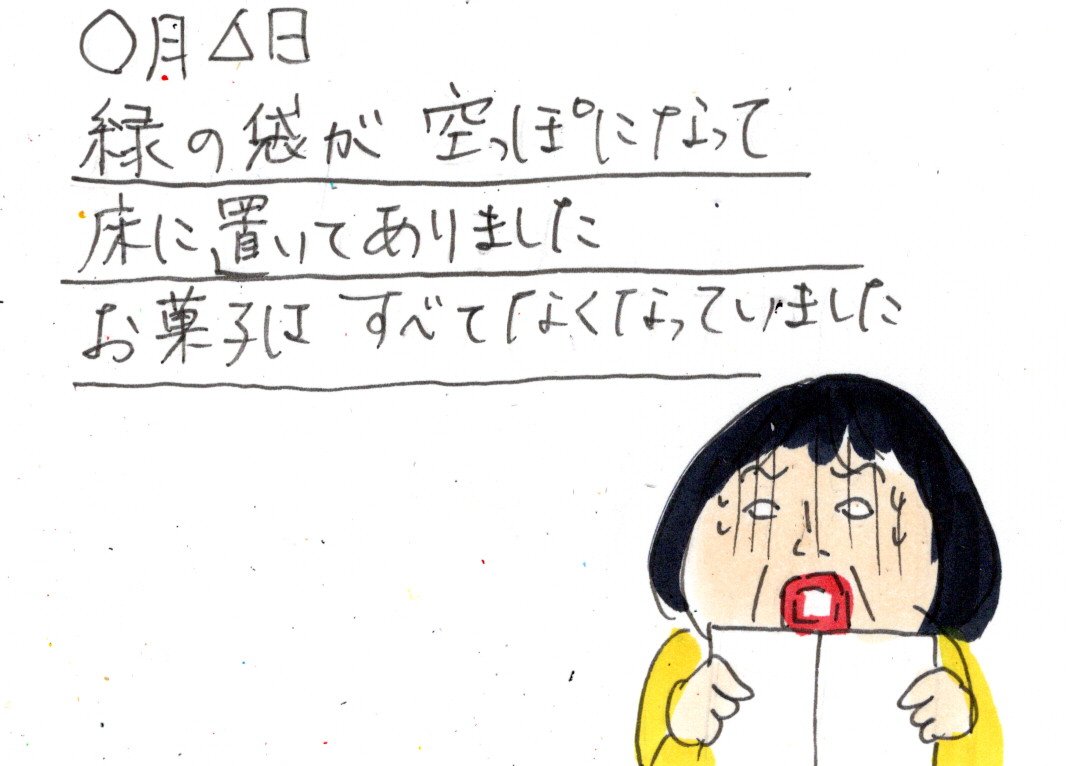 〇月△日
緑の袋が 空っぽになって
床に置いてありました
お菓子は すべてなくなっていました